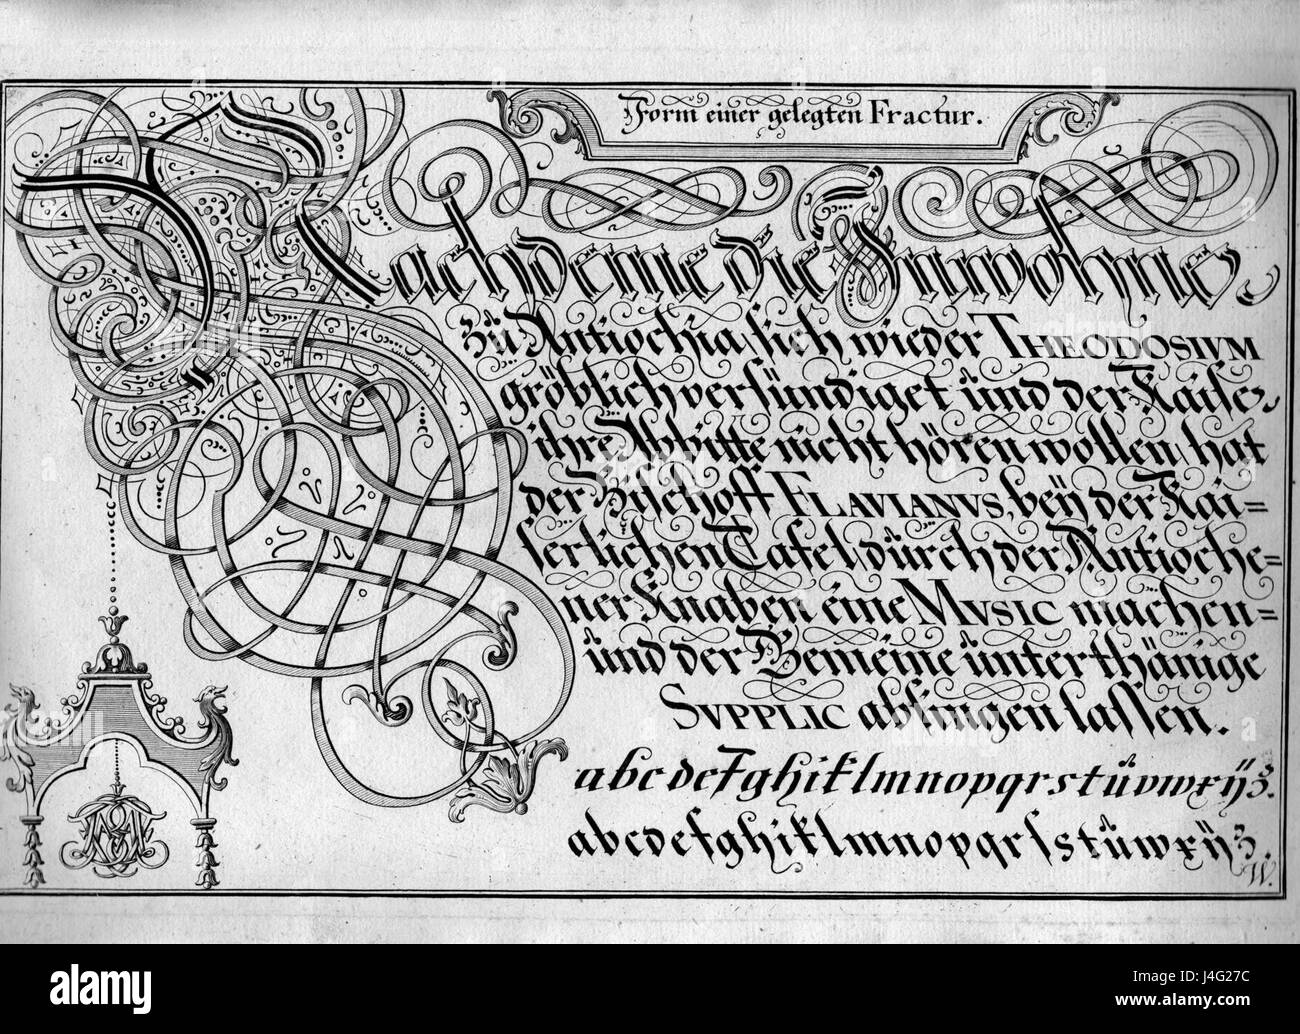 Form einer gelegten Fractur.
Nachdeme die Innwohner
zu Antiochia, sich wieder THEODOSIVM
gröblich versündiget und der Kaiser
ihre Abbitte nicht hören wollen, hat
der Bischoff FLAVIANVS, beÿ der Kai=
serlichen Tafel, durch der Antioche=
ner Knaben eine MVSIC machen=
und der Gemeine unterthänige
SVPPLIC absingen lassen.
a b c d e f g h i k l m n o p q r s t ŭ v w x ÿ z.
a b c d e f g h i k l m n o p q r ſ s t ŭ w x ÿ z.
W.
alamy
alamy stock photo
J4G27C
www.alamy.com